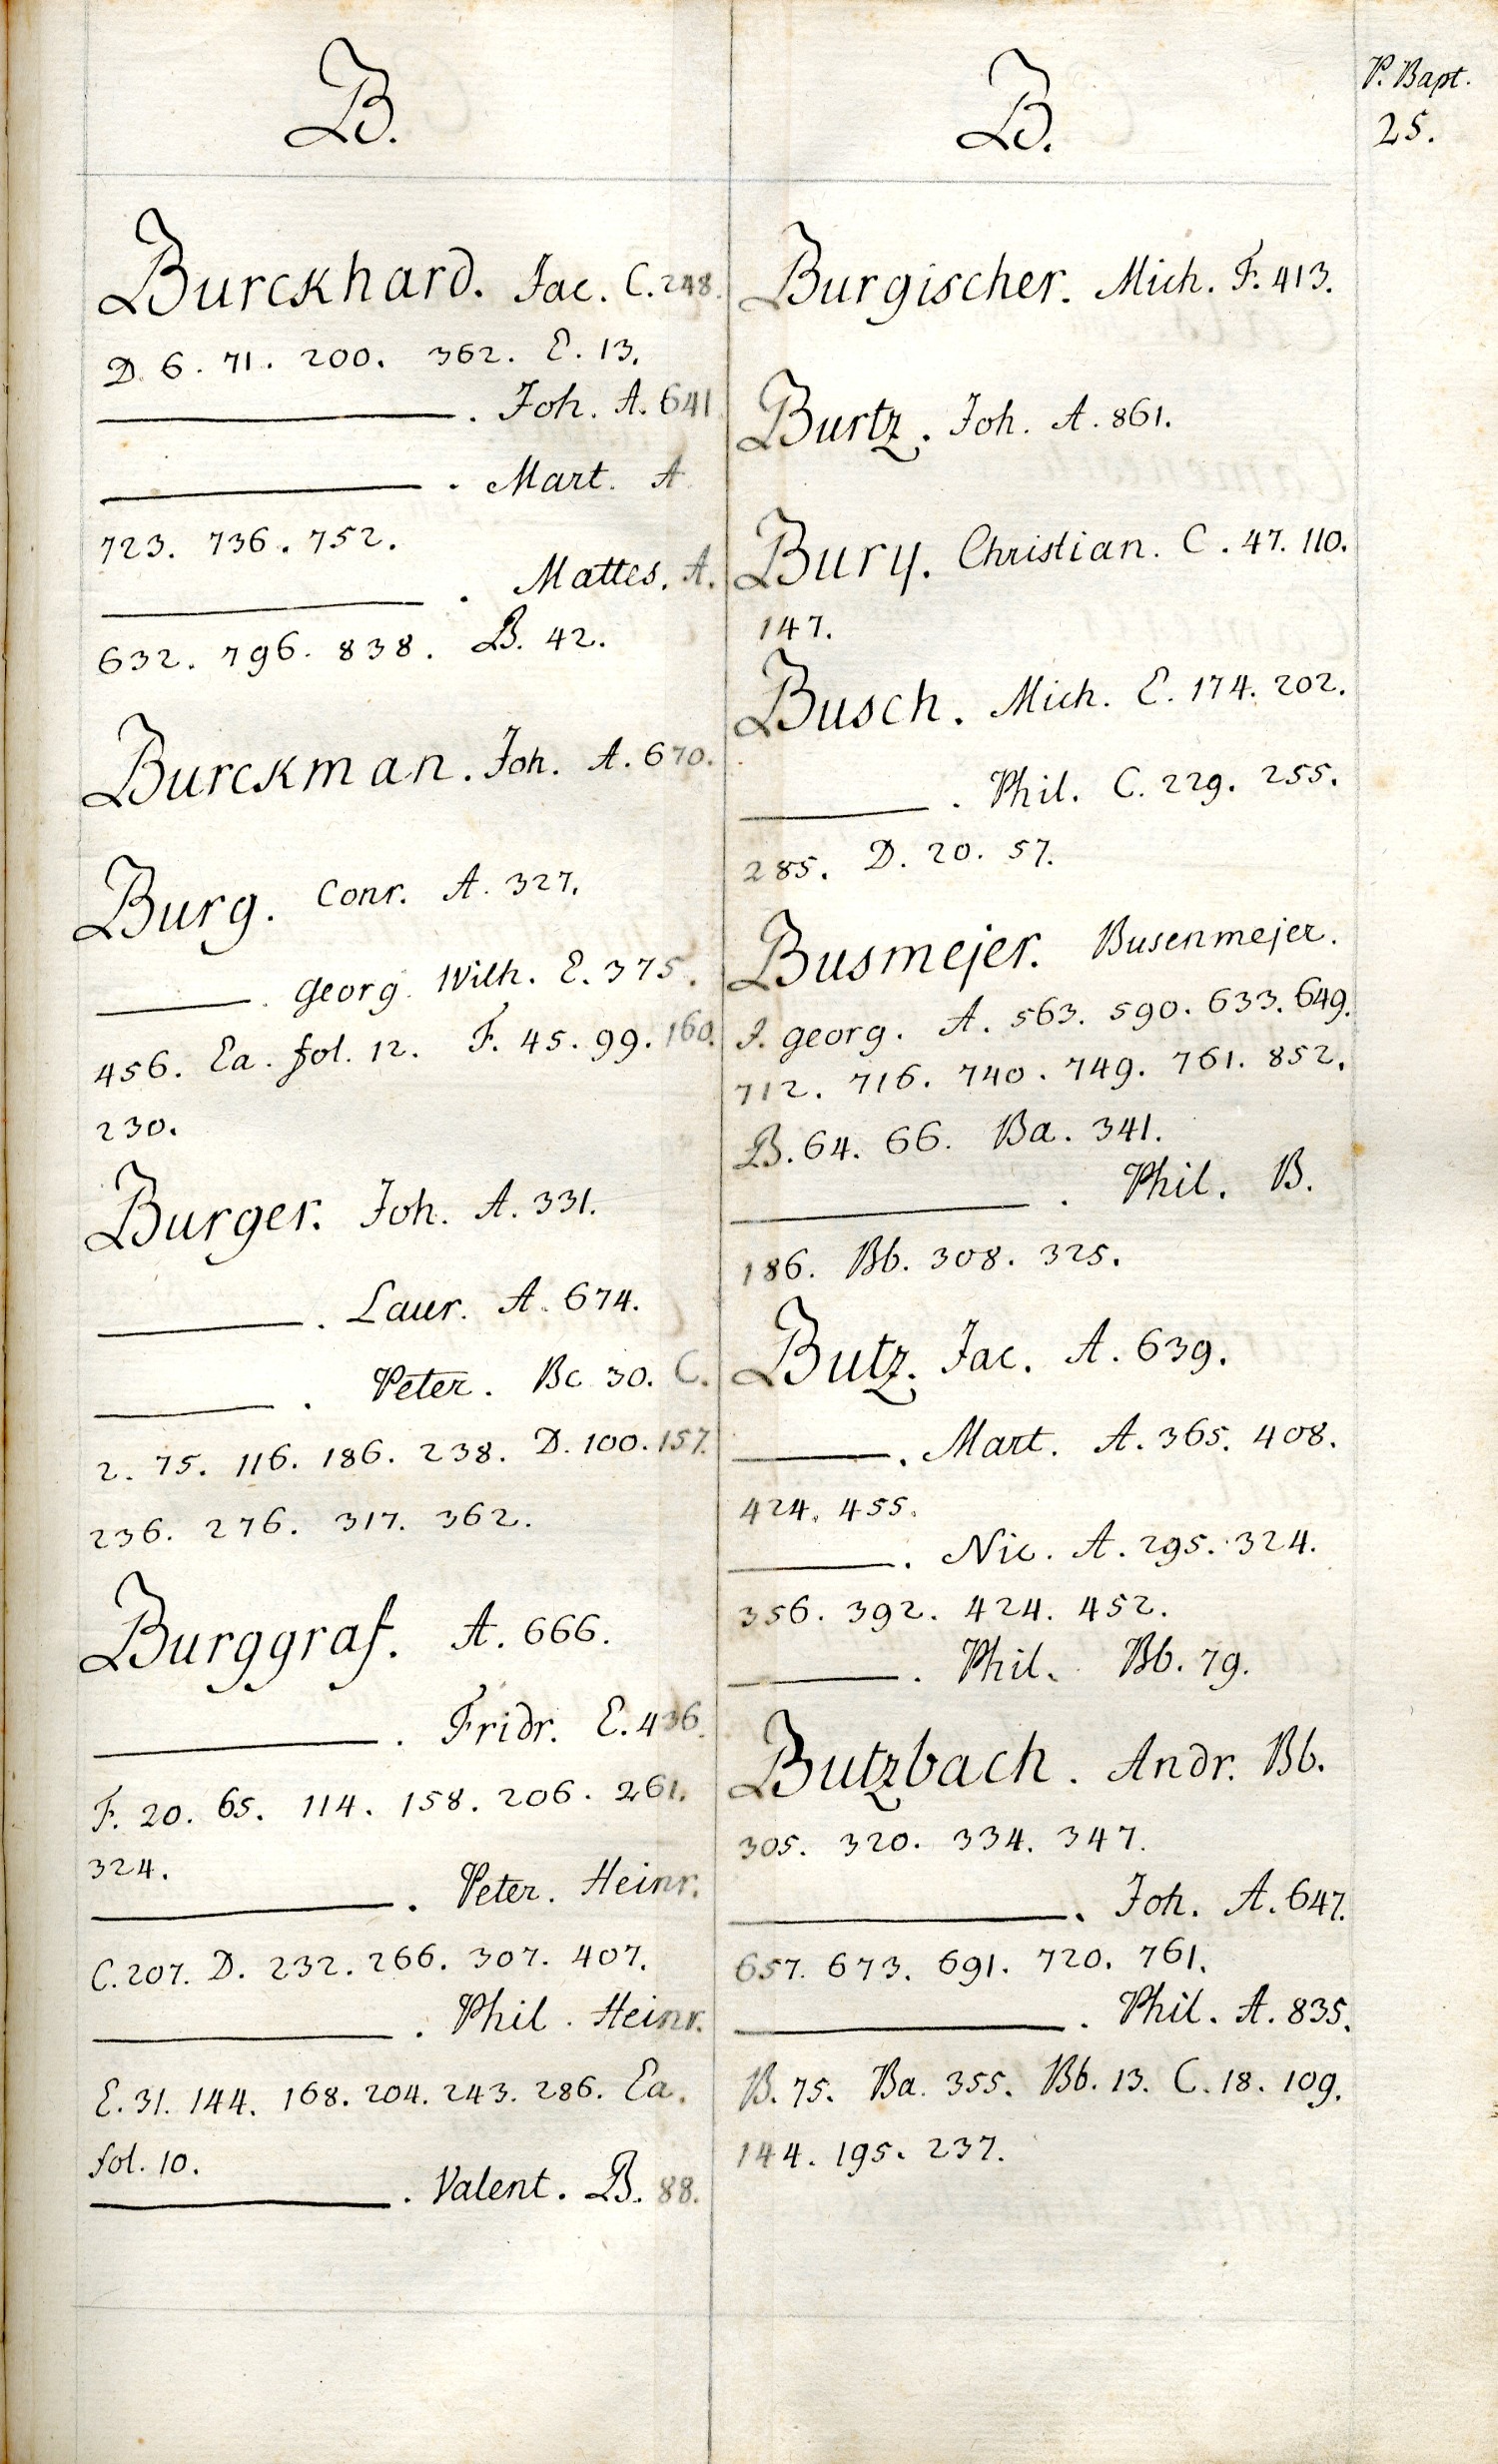 B.
Burckhard. Jac. C. 248.
D. 6. 71. 200. 362. E. 13.
———. Joh. A. 641
———. Mart. A
723. 736. 752.
———. Mattes. A.
632. 796. 838. B. 42.
Burckman. Joh. A. 670.
Burg. Conr. A. 327.
———. Georg. Wilh. E. 375.
456. Ea. fol. 12. F. 45. 99. 160.
230.
Burger. Joh. A. 331.
———. Laur. A. 674.
———. Peter. Bc 30. C.
2. 75. 116. 186. 238. D. 100. 157.
236. 276. 317. 362.
Burggraf. A. 666.
———. Fridr. E. 436.
F. 20. 65. 114. 158. 206. 261.
324.
———. Peter. Heinr.
C. 207. D. 232. 266. 307. 407.
———. Phil. Heinr.
E. 31. 144. 168. 204. 243. 286. Ea.
fol. 10.
———. Valent. B. 88.
B.
Burgischer. Mich. F. 413.
Burtz. Joh. A. 861.
Bury. Christian. C. 47. 110.
147.
Busch. Mich. E. 174. 202.
———. Phil. C. 229. 255.
285. D. 20. 57.
Busmejer. Busenmejer.
J. Georg. A. 563. 590. 633. 649.
712. 716. 740. 749. 761. 852.
B. 64. 66. Ba. 341.
———. Phil. B.
186. Bb. 308. 325.
Butz. Jac. A. 639.
———. Mart. A. 365. 408.
424. 455.
———. Nic. A. 295. 324.
356. 392. 424. 452.
———. Phil. Bb. 79.
Butzbach. Andr. Bb.
305. 320. 334. 347.
———. Joh. A. 647.
657. 673. 691. 720. 761.
———. Phil. A. 835.
B. 75. Ba. 355. Bb. 13. C. 18. 109.
144. 195. 237.
P. Bapt.
25.